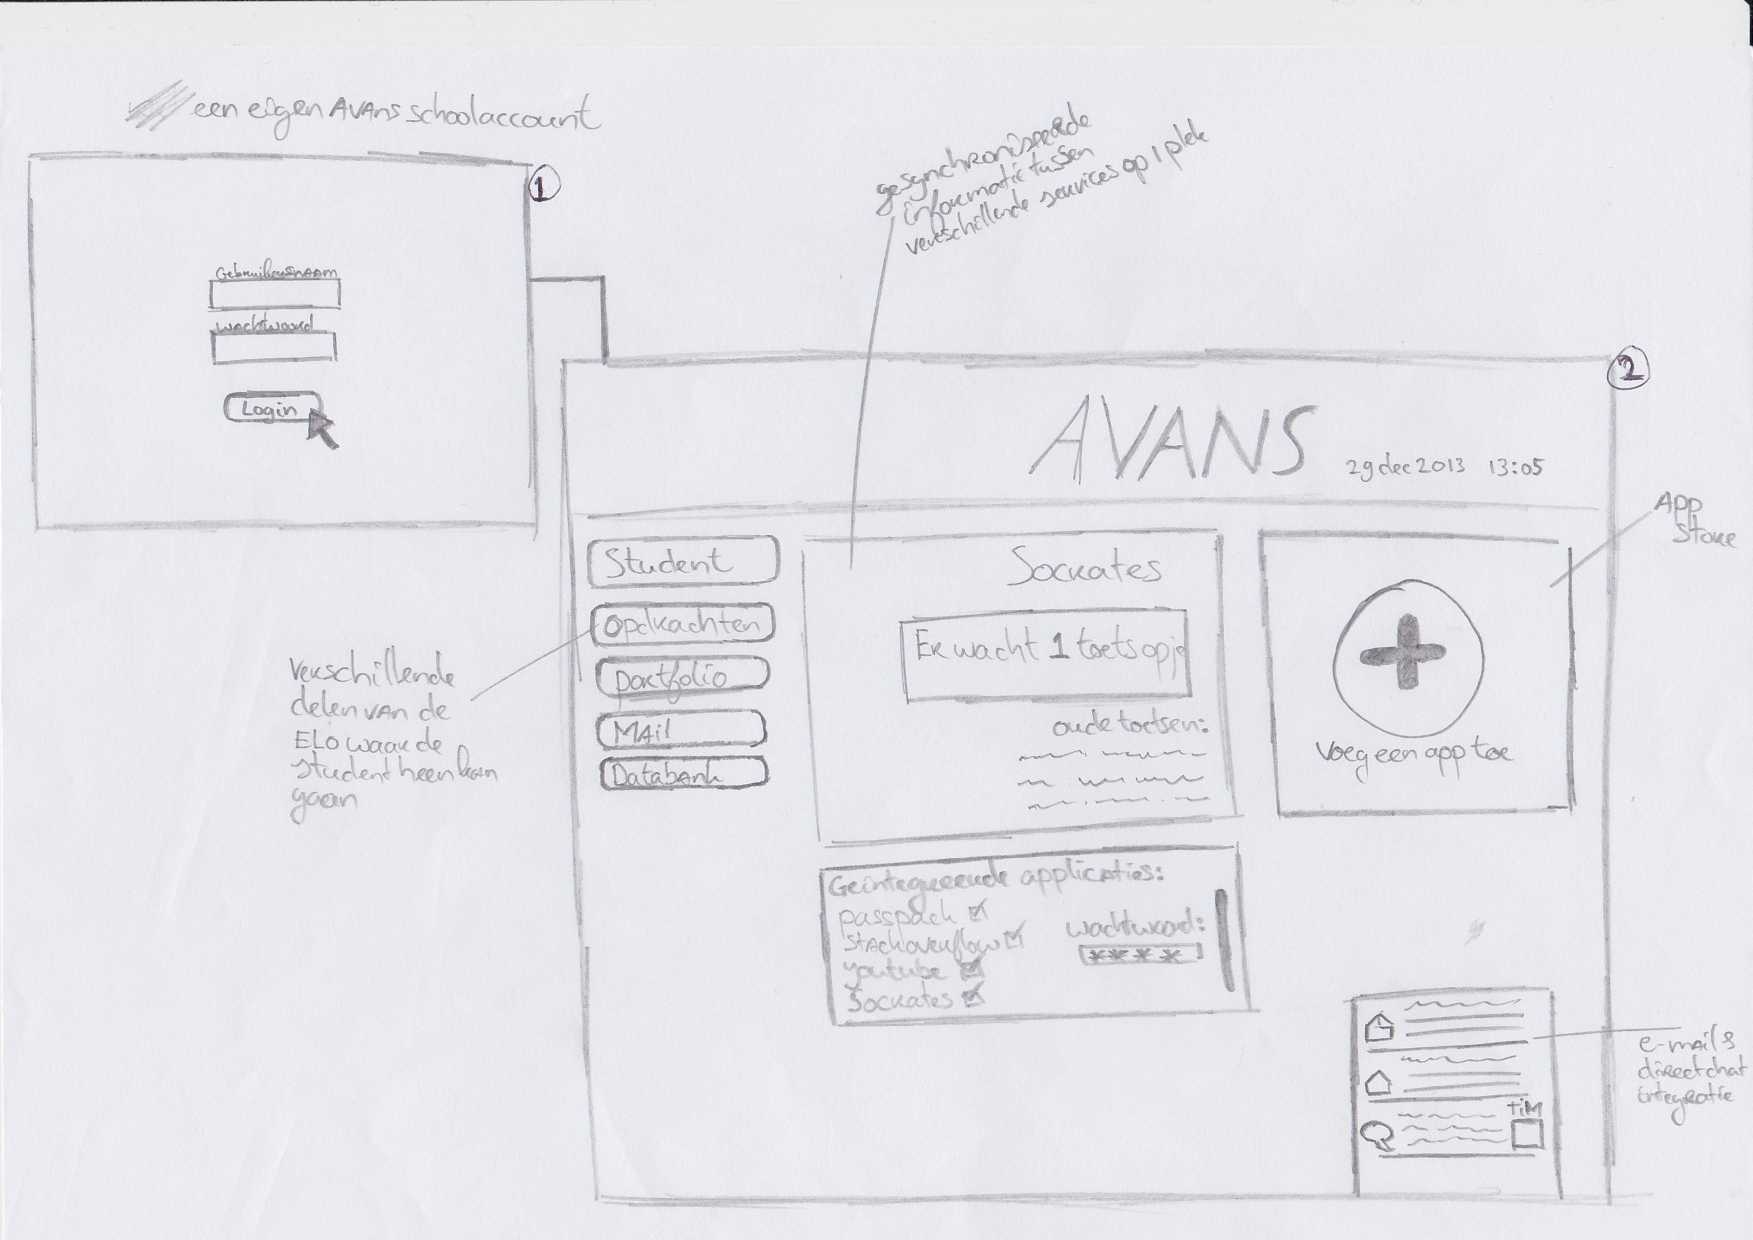 een eigen AVAns schoolaccount
1
Gebruikersnaam
wachtwoord
Login
gesynchroniseerde
informatie tussen
verschillende services op 1 plek
2
AVANS
29 dec 2013 13:05
App
Store
Student
Opdrachten
portfolio
MAil
Databank
Verschillende
delen van de
ELO waar de
student heen kan
gaan
Socrates
Er wacht 1 toets op je
oude toetsen:
Voeg een app toe
Geïntegreerde applicaties:
passpack
stackoverflow
youtube
Socrates
wachtwoord:
****
e-mail &
direct chat
integratie
TiM